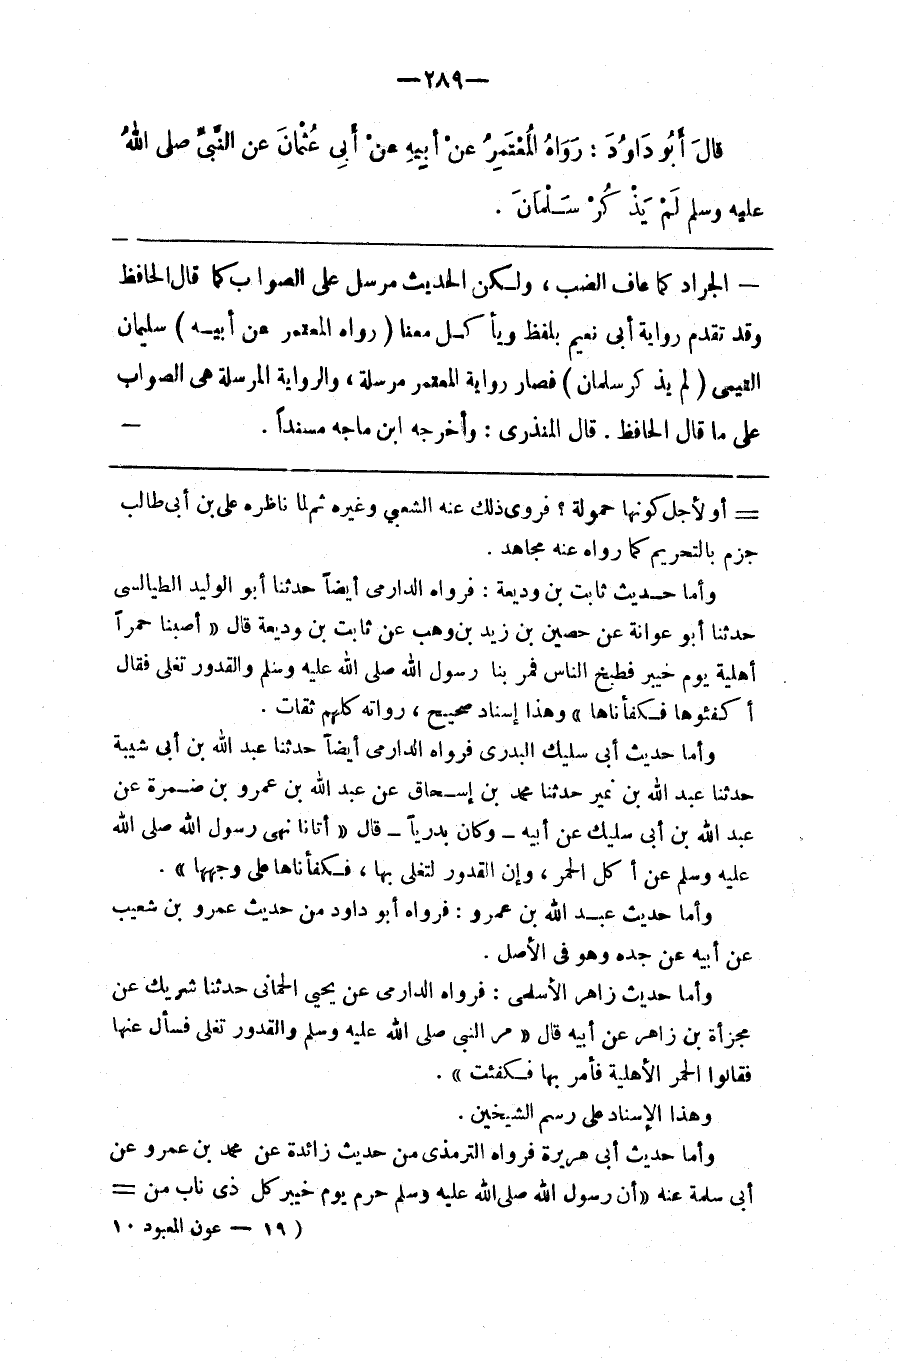 —٢٨٩—
قالَ أَبُو دَاوُدَ : رَوَاهُ الْمُعْتَمِرُ عنْ أبِيهِ عنْ أَبِى عُثْمَانَ عن النَّبىِّ صلى اللهُ
عليه وسلم لَمْ يَذْ كُرْ سَلْمَانَ .
— الجراد كما عاف الضب ، ولكن الحديث مرسل على الصواب كما قال الحافظ
وقد تقدم رواية أبى نعيم بلفظ ويأكل معنا ( رواه المعتمر عن أبيه ) سليمان
التيمى ( لم يذ كر سلمان ) فصار رواية المعتمر مرسلة ، والرواية المرسلة هى الصواب
على ما قال الحافظ . قال المنذرى : وأخرجه ابن ماجه مسنداً . —
= أو لأجل كونها حمولة ؟ فروى ذلك عنه الشعبي وغيره ثم لما ناظره على بن أبى طالب
جزم بالتحريم كما رواه عنه مجاهد .
وأما حديث ثابت بن وديعة : فرواه الدارمى أيضاً حدثنا أبو الوليد الطيالسى
حدثنا أبو عوانة عن حصين بن زيد بن وهب عن ثابت بن وديعة قال « أصبنا حمراً
أهلية يوم خيبر فطبخ الناس فمر بنا رسول الله صلى الله عليه وسلم والقدور تغلى فقال
أ كفئوها فكفأناها » وهذا إسناد صحيح ، رواته كلهم ثقات .
وأما حديث أبى سليك البدرى فرواه الدارمى أيضاً حدثنا عبد الله بن أبى شيبة
حدثنا عبد الله بن نمير حدثنا محمد بن إسحاق عن عبد الله بن عمرو بن ضمرة عن
عبد الله بن أبى سليك عن أبيه ــ وكان بدرياً ــ قال « أتانا نهى رسول الله صلى الله
عليه وسلم عن أ كل الحمر ، وإن القدور لتغلى بها ، فكفأناها على وجهها » .
وأما حديث عبد الله بن عمرو : فرواه أبو داود من حديث عمرو بن شعيب
عن أبيه عن جده وهو فى الأصل .
وأما حديث زاهر الأسلمى : فرواه الدارمى عن يحيى الحمانى حدثنا شريك عن
مجزأة بن زاهر عن أبيه قال « مر النبي صلى الله عليه وسلم والقدور تغلى فسأل عنها
فقالوا الحمر الأهلية فأمر بها فكفئت » .
وهذا الإسناد على رسم الشيخين .
وأما حديث أبى هريرة فرواه الترمذى من حديث زائدة عن محمد بن عمرو عن
أبى سلمة عنه «أن رسول الله صلى الله عليه وسلم حرم يوم خيبر كل ذى ناب من =
( ١٩ — عون المعبود ١٠